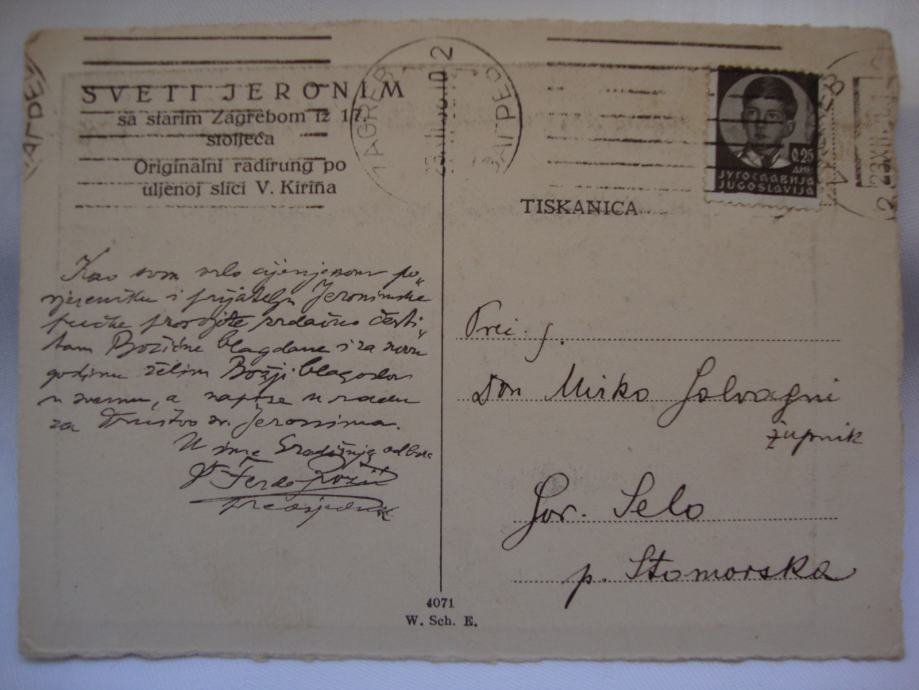 SVETI JERONIM
sa starim Zagrebom iz 17.
stoljeća
Originalni radirung po
uljenoj slici V. Kirina
ZAGREB
0.25
ДИН.
ЈУГОСЛАВИЈА
JUGOSLAVIJA
TISKANICA
Kao svom vrlo cijenjenom po„
vjereniku i prijatelju Jeronimske
pučke prosvjete srdačno česti„
tam Božićne blagdane i za novu
godinu želim Božji blagoslov
u svemu, a napose u radu
za Društvo sv. Jeronima.
U ime Središnjeg odbora
Dr Ferdo Rožić
predsjednik
Preč. g.
Don Mirko Salvagni
župnik
Gor. Selo
p. Stomorska
4071
W. Sch. E.